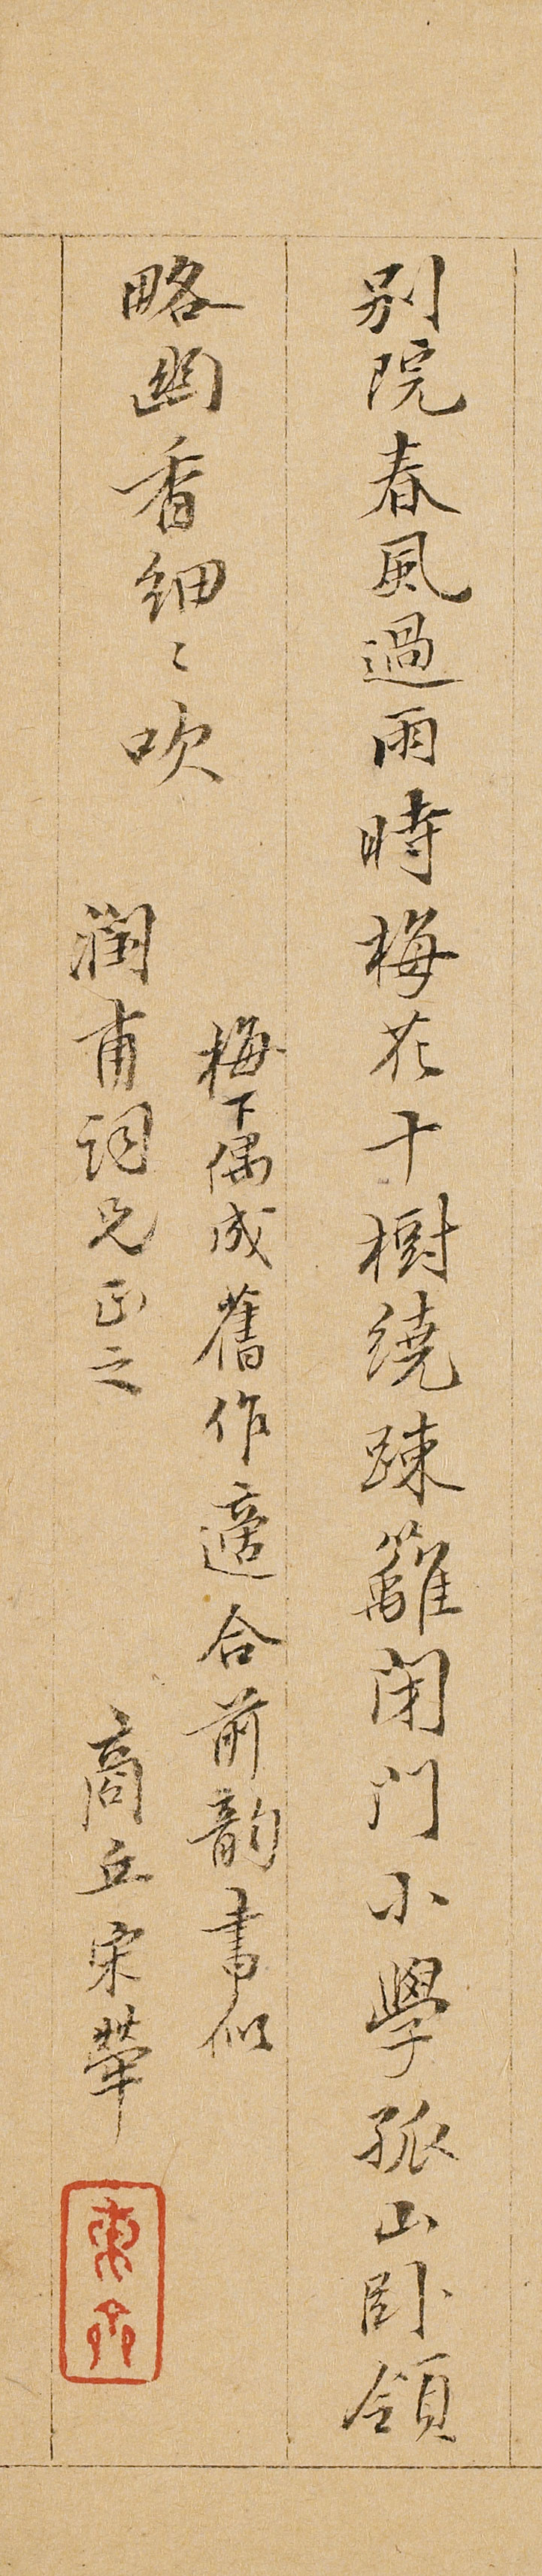 別院春風過雨時梅花十樹繞疎籬閉門小學孤山卧領
略幽香細〻吹
梅下偶成舊作適合前韵書似
潤甫詞兄正之
商丘宋犖
東齋